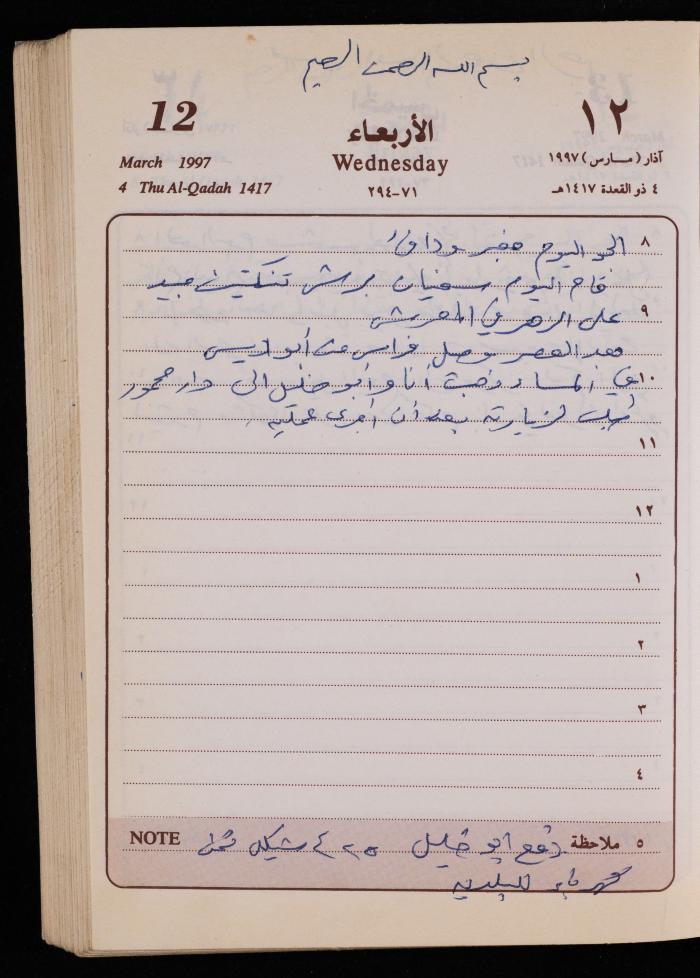 بسم الله الرحمن الرحيم
12
١٢
الأربعاء
March 1997
Wednesday
آذار (مارس) ١٩٩٧
4 Thu Al-Qadah 1417
٧١-٢٩٤
٤ ذو القعدة ١٤١٧هـ
٨ الجو اليوم مغبر ودافئ
قام اليوم سفيان برش تنكتين مبيد
٩ على الزهر في المعرش
بعد العصر وصل فراس من أبو ديس
١٠ في المساء ذهبت أنا وأبو خليل الى دار محمود
لزيارته بعد أن أجرى عملية
١١
١٢
١
٢
٣
٤
NOTE ٥ ملاحظة دفع أبو خليل ٤٢٥ شيكل ثمن
كهرباء للبلدية